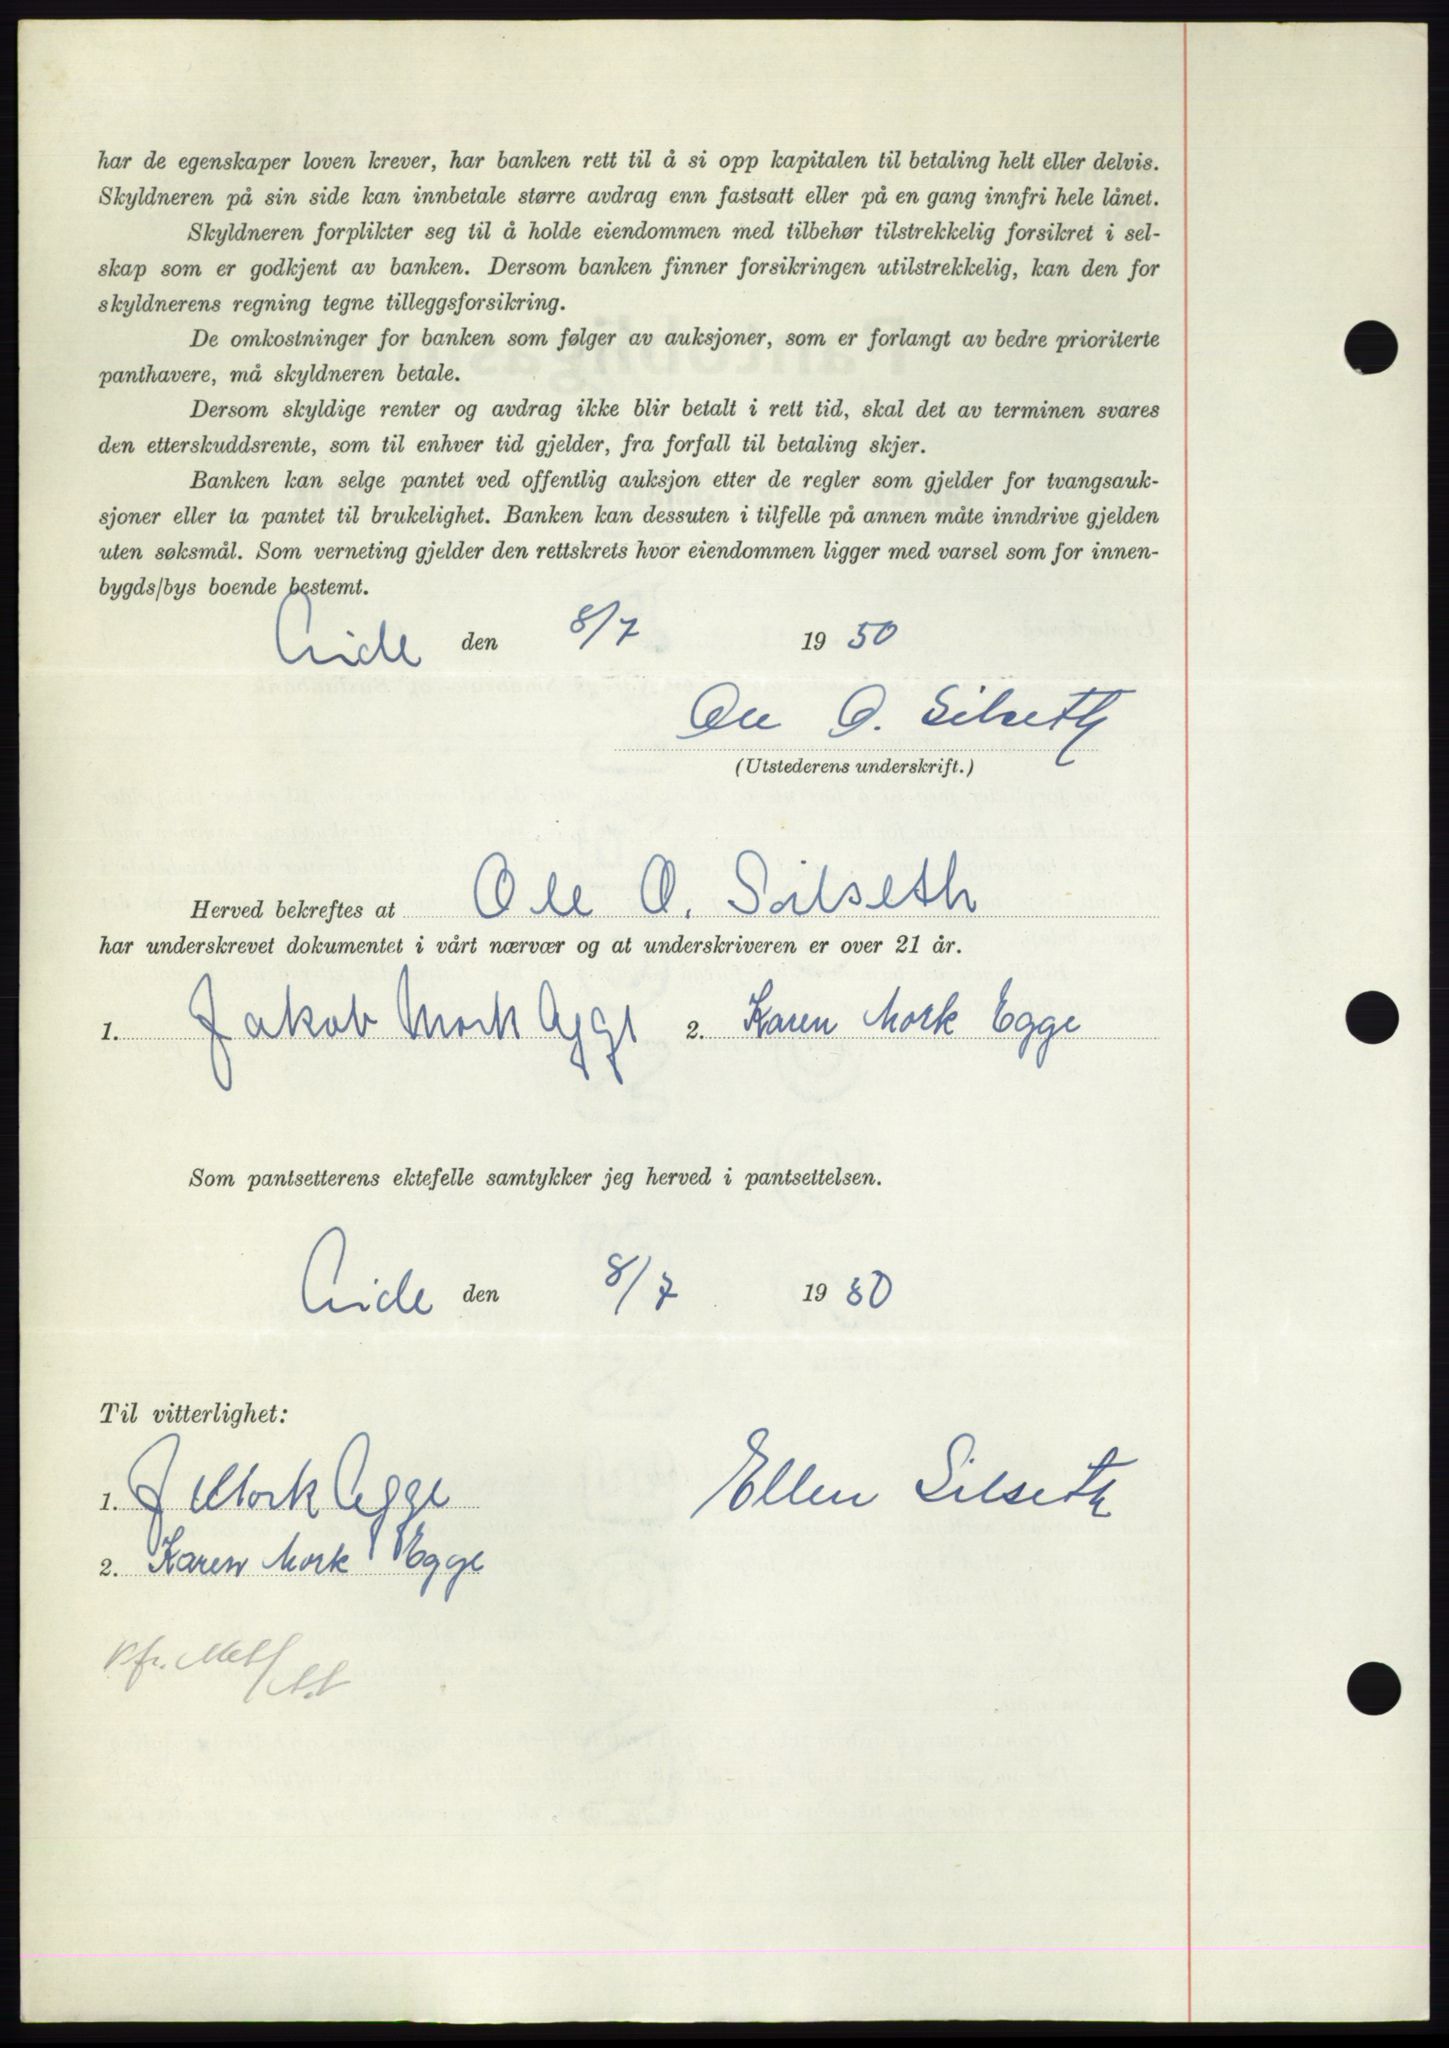 har de egenskaper loven krever, har banken rett til å si opp kapitalen til betaling helt eller delvis.
Skyldneren på sin side kan innbetale større avdrag enn fastsatt eller på en gang innfri hele lånet.
Skyldneren forplikter seg til å holde eiendommen med tilbehør tilstrekkelig forsikret i sel-
skap som er godkjent av banken. Dersom banken finner forsikringen utilstrekkelig, kan den for
skyldnerens regning tegne tilleggsforsikring.
De omkostninger for banken som følger av auksjoner, som er forlangt av bedre prioriterte
panthavere, må skyldneren betale.
Dersom skyldige renter og avdrag ikke blir betalt i rett tid, skal det av terminen svares
den etterskuddsrente, som til enhver tid gjelder, fra forfall til betaling skjer.
Banken kan selge pantet ved offentlig auksjon etter de regler som gjelder for tvangsauk-
sjoner eller ta pantet til brukelighet. Banken kan dessuten i tilfelle på annen måte inndrive gjelden
uten søksmål. Som verneting gjelder den rettskrets hvor eiendommen ligger med varsel som for innen-
bygds/bys boende bestemt.
den 8/7 19 50
Ole O. Silseth
(Utstederens underskrift.)
Herved bekreftes at Ole O. Silseth
har underskrevet dokumentet i vårt nærvær og at underskriveren er over 21 år.
1. Jakob Mork Egge 2. Karen Mork Egge
Som pantsetterens ektefelle samtykker jeg herved i pantsettelsen.
den 8/7 19 50
Til vitterlighet:
1. J Mork Egge Ellen Silseth
2. Karen Mork Egge